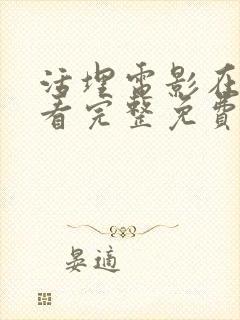 活埋雷影在
看完整免費
晏適